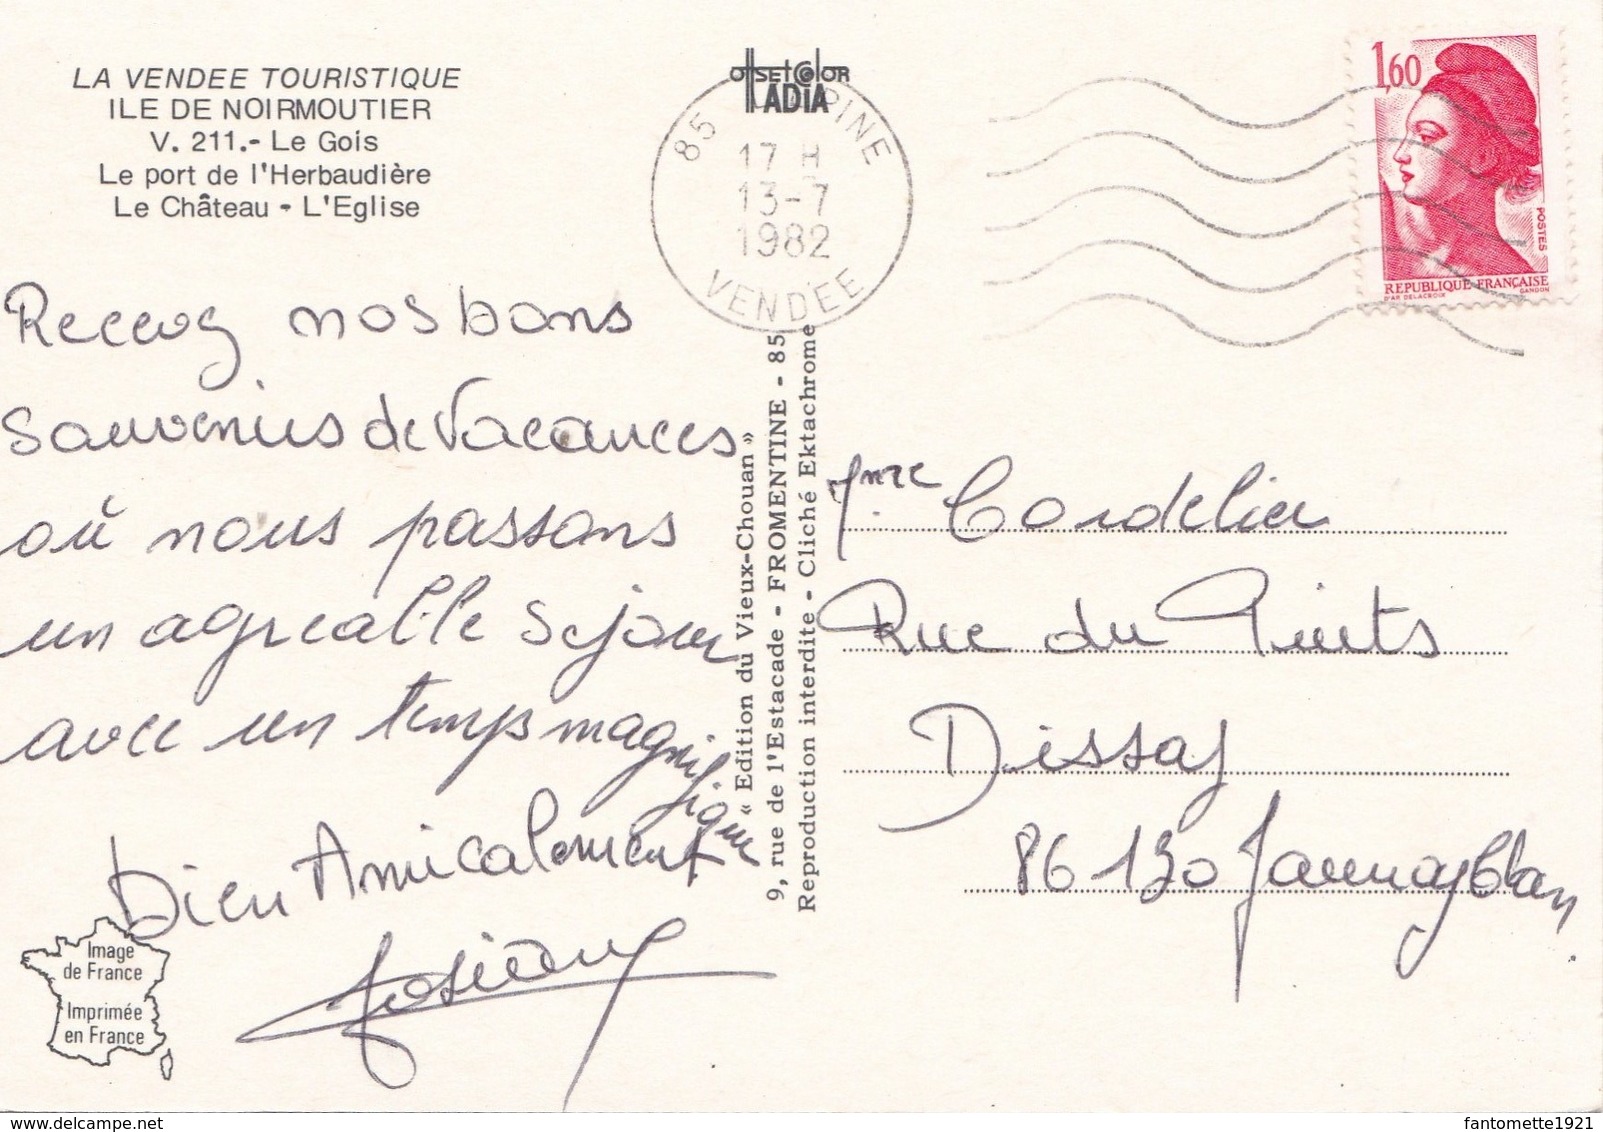 LA VENDEE TOURISTIQUE
ILE DE NOIRMOUTIER
V. 211.- Le Gois
Le port de l'Herbaudière
Le Château - L'Eglise
Recevez nos bons
souvenirs de Vacances
où nous passons
un agreable sejour
avec un temps magnifique
Bien Amicalement
Josiane
Image
de France
Imprimée
en France
offset color
ADIA
85
PINE
17 H
13-7
1982
VENDEE
« Edition du Vieux-Chouan »
9, rue de l'Estacade - FROMENTINE - 85
Reproduction interdite - Cliché Ektachrome
1,60
POSTES
REPUBLIQUE FRANÇAISE
D'AP. DELACROIX GANDON
Mme Cordelier
Rue du Puits
Dissay
86130 Jaunay Clan
fantomette1921